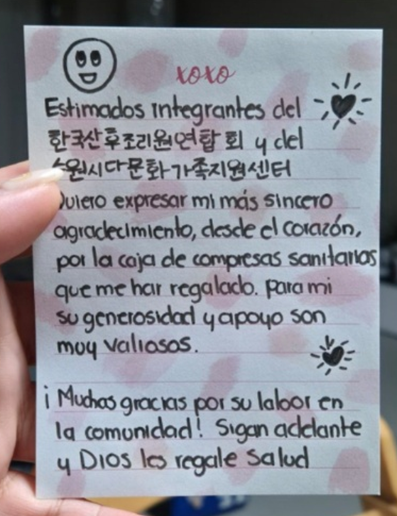 xoxo
Estimados integrantes del
한국산후조리원연합회 y del
수원시다문화가족지원센터
Quiero expresar mi más sincero
agradecimiento, desde el corazón,
por la caja de compresas sanitarias
que me han regalado. Para mi
su generosidad y apoyo son
muy valiosos.
¡Muchas gracias por su labor en
la comunidad! Sigan adelante
y DIOS les regale salud